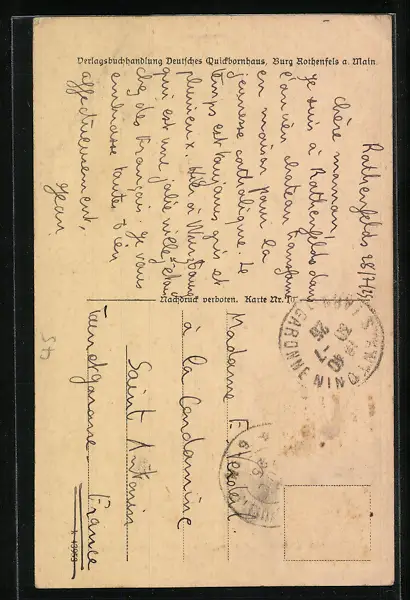 Verlagsbuchhandlung Deutsches Quickbornhaus, Burg Rothenfels a. Main.
Rothenfelds 28/7/
Chère maman,
Je suis à Rothenfelds dans
l'ancien chateau transformé
en maison pour la
jeunesse catholique. Le
temps est toujours gris et
pluvieux. Hier à Wurzbourg
qui est une jolie ville j'étais
chez des Français. Je vous
embrasse toutes bien
affectueusement,
Jean
Nachdruck verboten. Karte Nr. 10
Madame F.
à la Condamine
Saint Antonin
Tarn et garonne France
ST ANTONIN
GARONNE
54